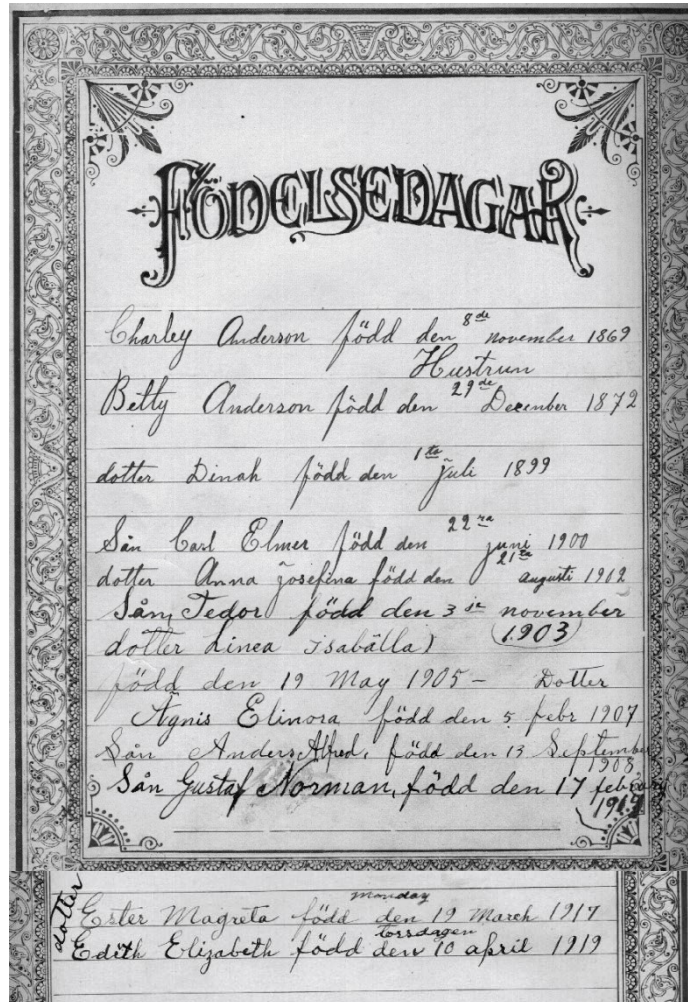 FÖDELSEDAGAR
Charley Anderson född den 8de november 1869
Hustrun
Betty Anderson född den 29de December 1872
dotter Dinah född den 1ta juli 1899
Sån Carl Elmer född den 22ra juni 1900
dotter Anna josefina född den 21ta augusti 1902
Sån, Tedor född den 3je november
dotter Linea isabälla) (1903)
född den 19 May 1905 – Dotter
Agnis Elinora född den 5 febr 1907
Sån Anders Alfred, född den 13 September
1908
Sån Gustaf Norman, född den 17 februari
dotter
monday
Ester Magreta född den 19 March 1917
torsdagen
Edith Elizabeth född den 10 april 1919